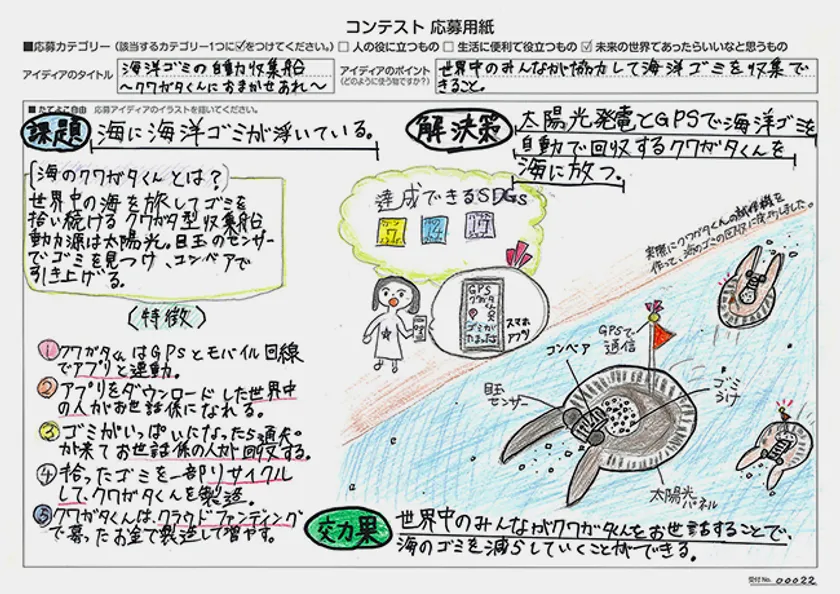 コンテスト 応募用紙
■応募カテゴリー (該当するカテゴリー1つに☑をつけてください。) □ 人の役に立つもの □ 生活に便利で役立つもの ☑ 未来の世界であったらいいなと思うもの
アイディアのタイトル
海洋ゴミの自動収集船
〜クワガタくんにおまかせあれ〜
アイディアのポイント
(どのように使う物ですか?)
世界中のみんなが協力して海洋ゴミを収集で
きること。
■ たてよこ自由 応募アイディアのイラストを描いてください。
課題
海に海洋ゴミが浮いている。
解決策
太陽光発電とGPSで海洋ゴミを
自動で回収するクワガタくんを
海に放つ。
海のクワガタくんとは?
世界中の海を旅してゴミを
拾い続けるクワガタ型収集船
動力源は太陽光。目玉のセンサー
でゴミを見つけ、コンベアで
引き上げる。
(特徴)
1 クワガタくんはGPSとモバイル回線
でアプリと連動。
2 アプリをダウンロードした世界中
の人がお世話係になれる。
3 ゴミがいっぱいになったら通知
が来てお世話係の人が回収する。
4 拾ったゴミを一部リサイクル
して、クワガタくんを製造。
5 クワガタくんは、クラウドファンティング
で募ったお金で製造して増やす。
達成できるSDGs
7
14
GPS
クワガタ
くん
ゴミが
たまったよ
スマホ
アプリ
実際にクワガタくんの試作機を
作って、海のゴミの回収に成功しました。
GPSで
通信
コンベア
目玉
センサー
ゴミ
うけ
太陽光
パネル
効果
世界中のみんながクワガタくんをお世話することで、
海のゴミを減らしていくことができる。
受付No. 00022